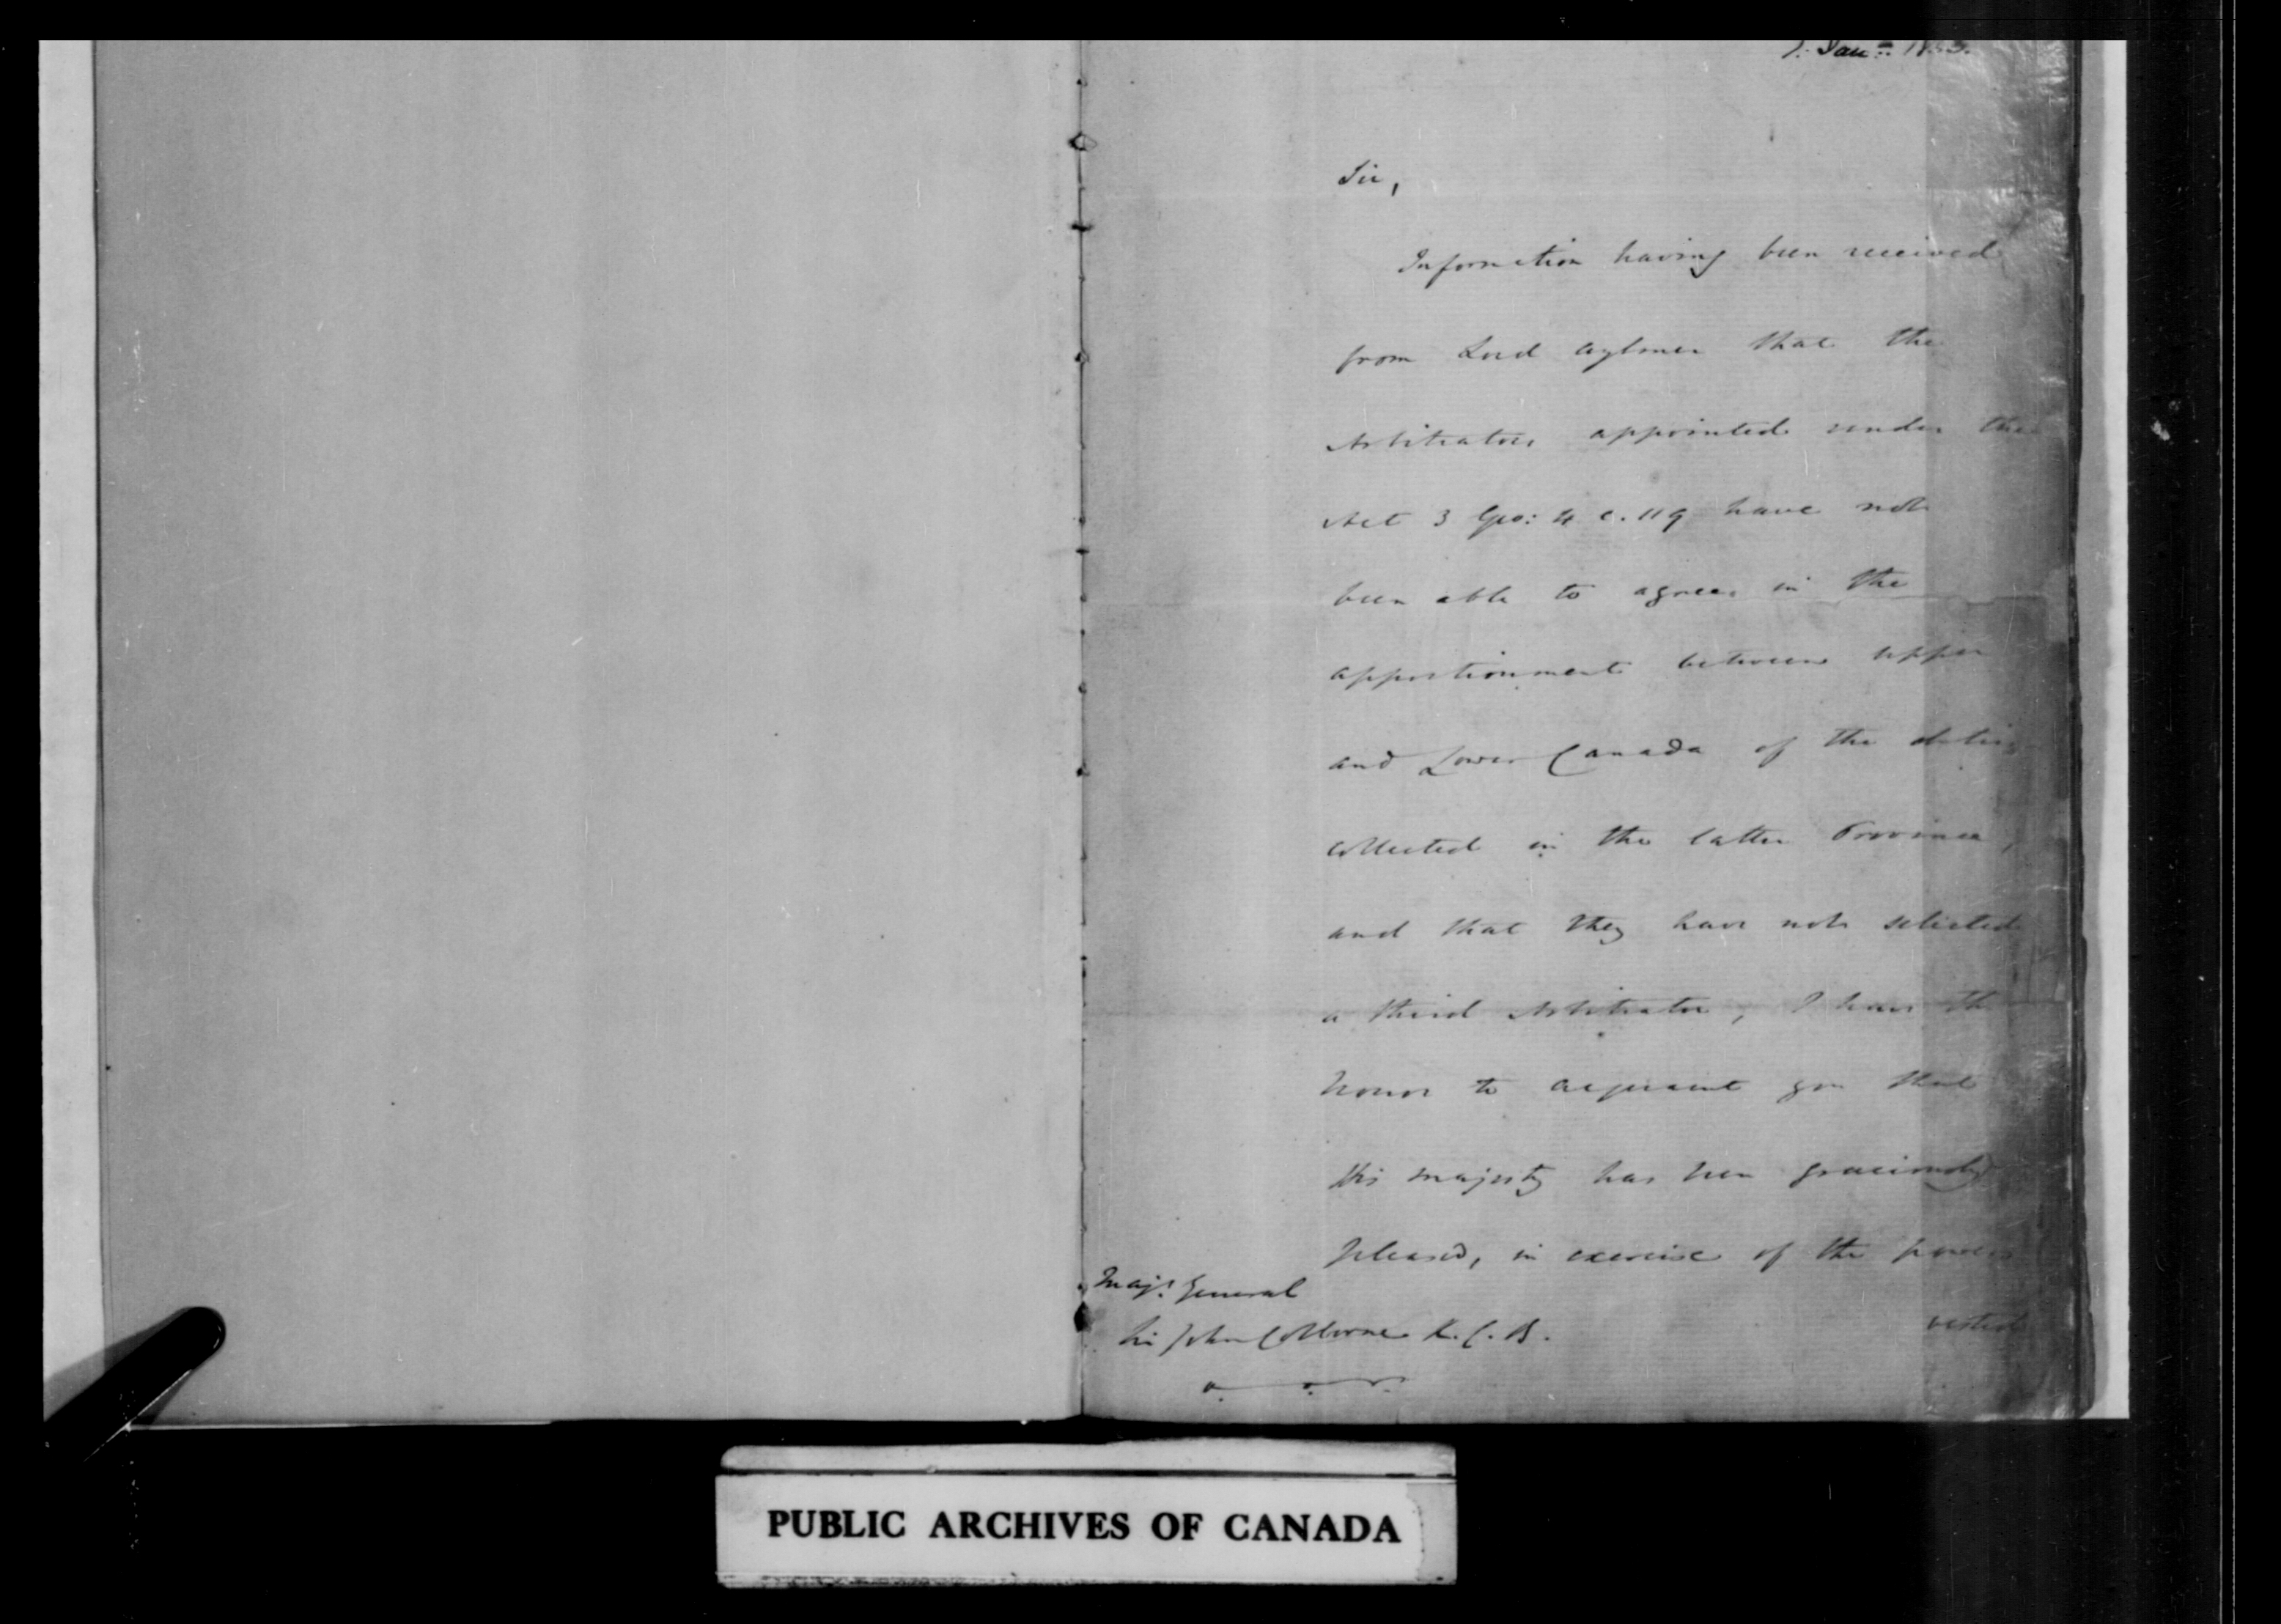 Jany. 1833.
Sir,
Information having been received
from Lord Aylmer that the
Arbitrators appointed under the
Act 3 Geo: 4 c. 119 have not
been able to agree in the
apportionment between Upper
and Lower Canada of the duties
collected in the latter Province,
and that they have not selected
a third Arbitrator, I have the
honor to acquaint you that
His Majesty has been graciously
pleased, in exercise of the power
Majr. General
Sir John Colborne K.C.B.
vested
PUBLIC ARCHIVES OF CANADA